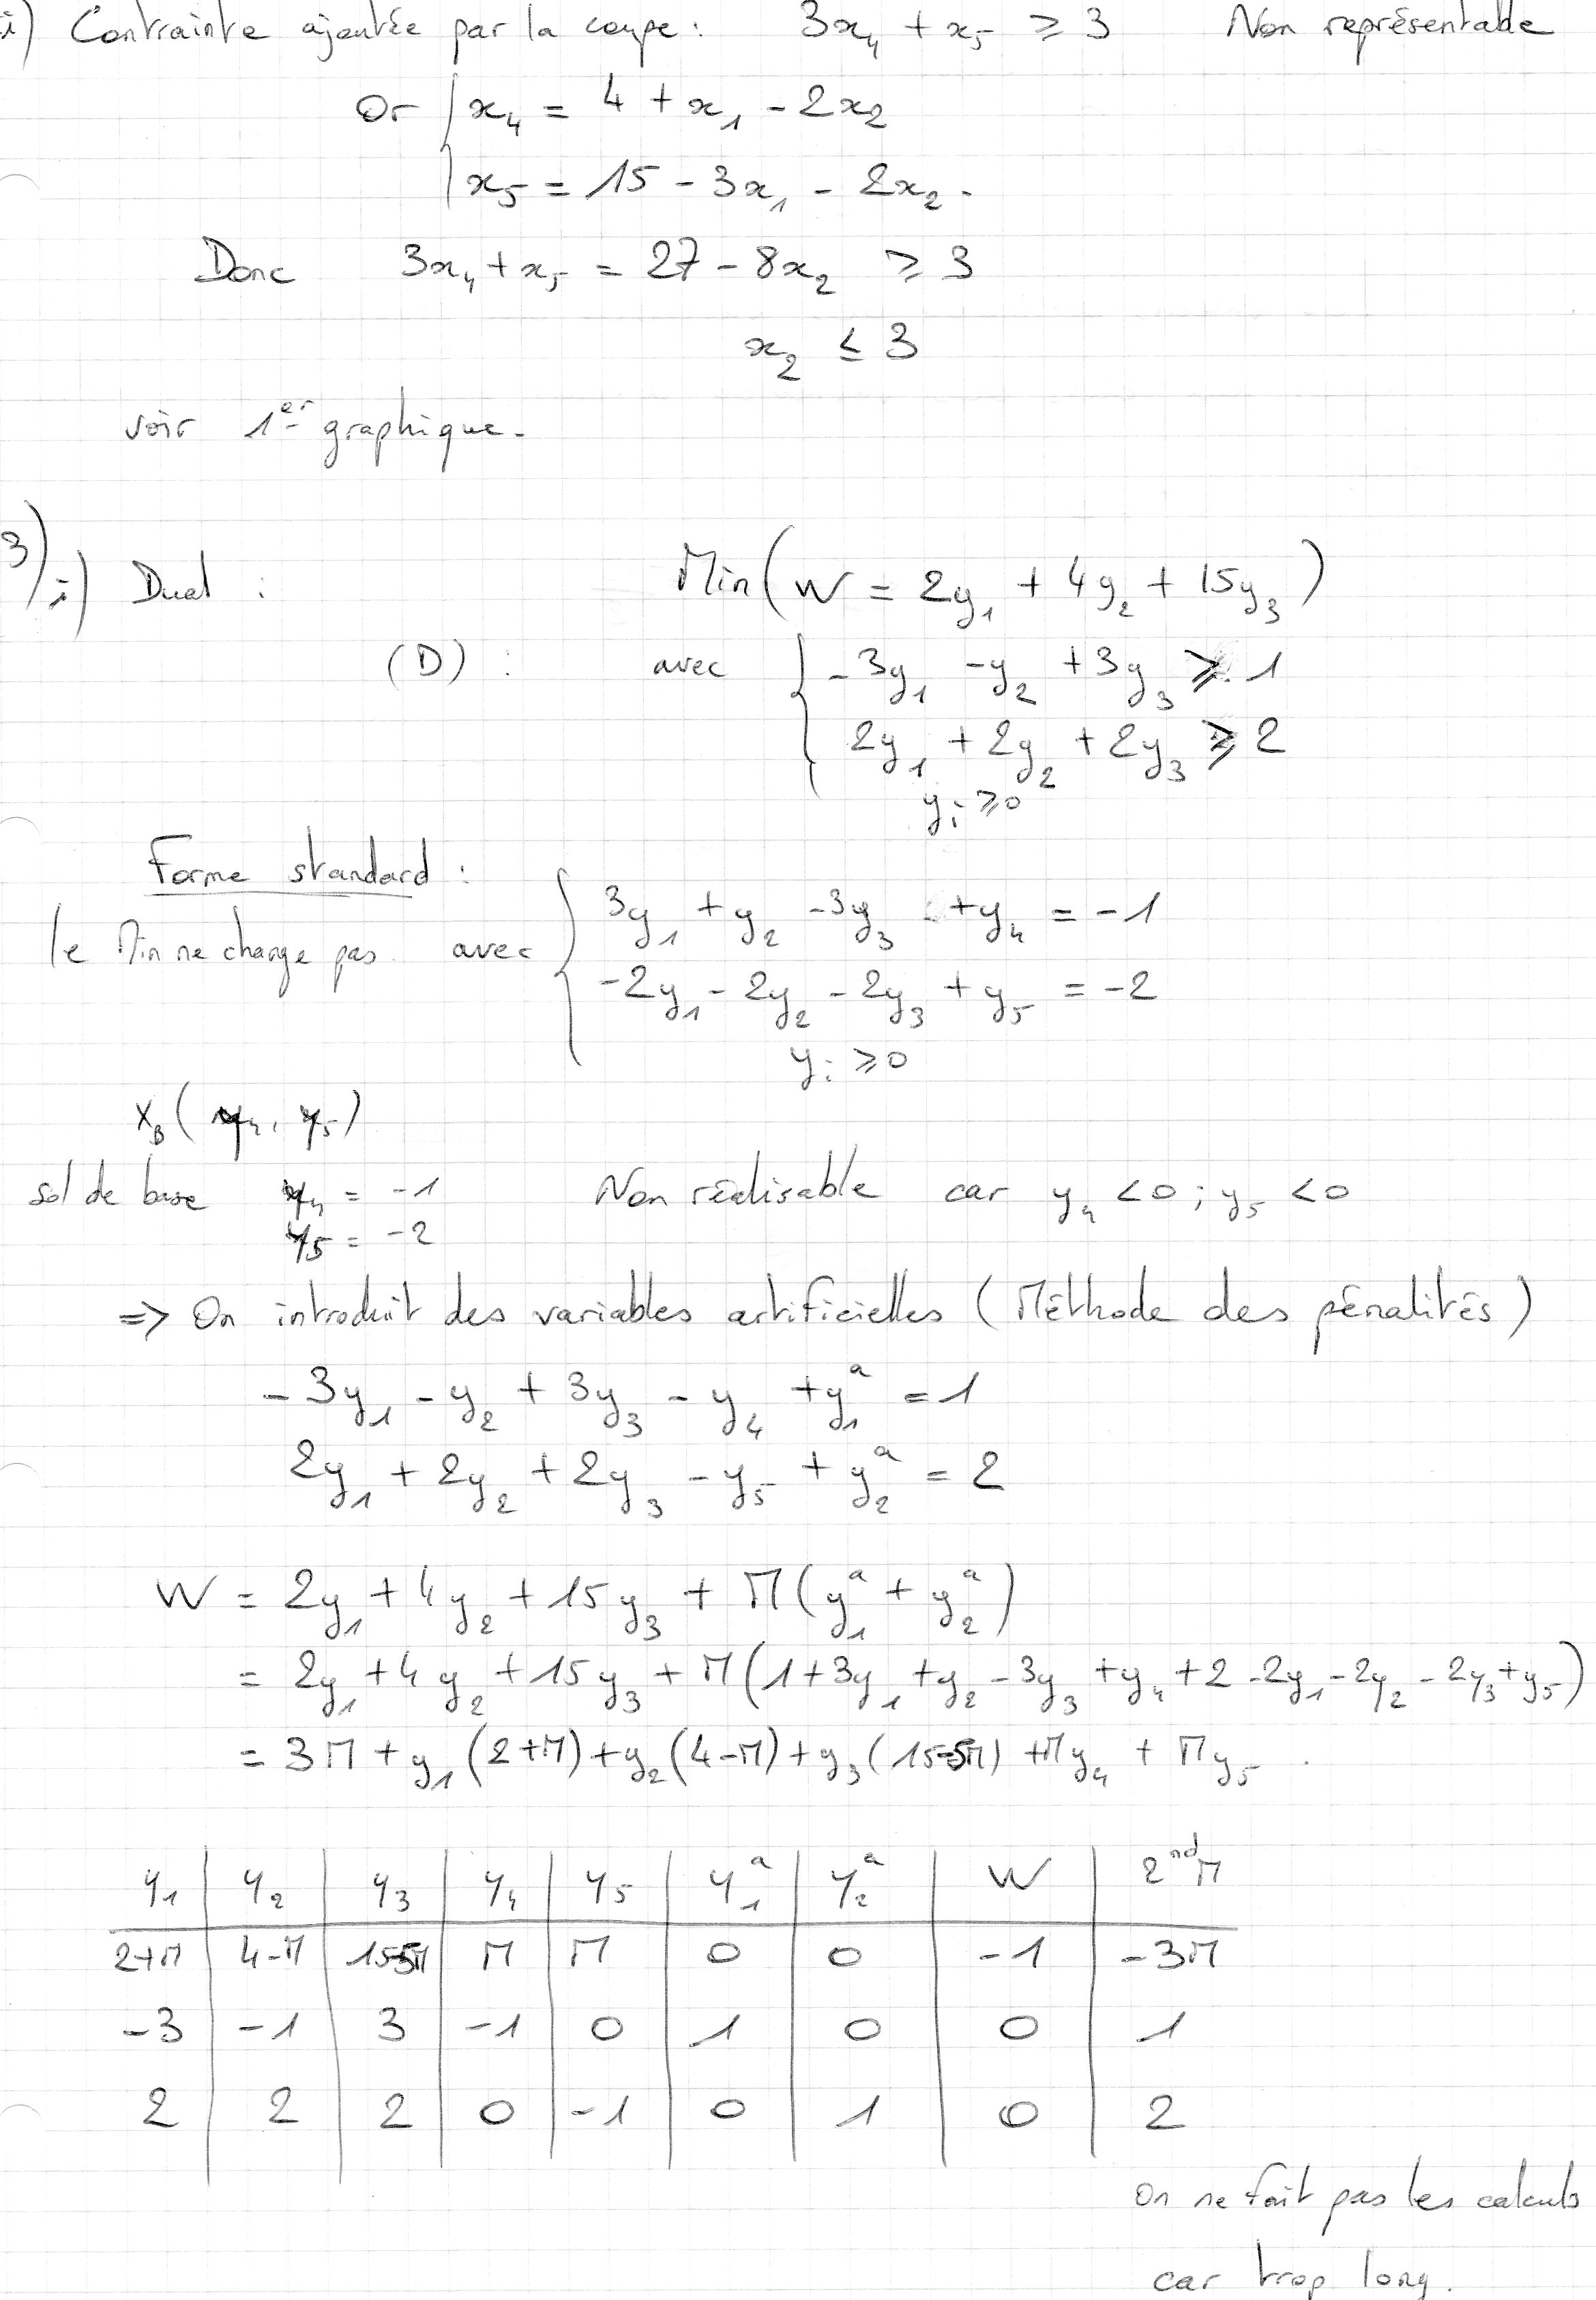 i) Contrainte ajoutée par la coupe : 3x₄ + x₅ ≥ 3 Non représentable
Or { x₄ = 4 + x₁ - 2x₂
x₅ = 15 - 3x₁ - 2x₂.
Donc 3x₄ + x₅ = 27 - 8x₂ ≥ 3
x₂ ≤ 3
voir 1er graphique.
3) i) Dual : Min( W = 2y₁ + 4y₂ + 15y₃ )
(D) : avec { -3y₁ - y₂ + 3y₃ ≥ 1
2y₁ + 2y₂ + 2y₃ ≥ 2
yᵢ ≥ 0
Forme standard :
le Min ne change pas. avec { 3y₁ + y₂ - 3y₃ + y₄ = -1
-2y₁ - 2y₂ - 2y₃ + y₅ = -2
yᵢ ≥ 0
X_B ( y₄, y₅ )
sol de base y₄ = -1 Non réalisable car y₄ < 0 ; y₅ < 0
y₅ = -2
=> On introduit des variables artificielles ( Méthode des pénalités )
-3y₁ - y₂ + 3y₃ - y₄ + y₁ᵃ = 1
2y₁ + 2y₂ + 2y₃ - y₅ + y₂ᵃ = 2
W = 2y₁ + 4y₂ + 15y₃ + M( y₁ᵃ + y₂ᵃ )
= 2y₁ + 4y₂ + 15y₃ + M( 1 + 3y₁ + y₂ - 3y₃ + y₄ + 2 - 2y₁ - 2y₂ - 2y₃ + y₅ )
= 3M + y₁(2+M) + y₂(4-M) + y₃(15-5M) + My₄ + My₅ .
y₁ | y₂ | y₃ | y₄ | y₅ | y₁ᵃ | y₂ᵃ | W | 2nd M
2+M | 4-M | 15-5M | M | M | 0 | 0 | -1 | -3M
-3 | -1 | 3 | -1 | 0 | 1 | 0 | 0 | 1
2 | 2 | 2 | 0 | -1 | 0 | 1 | 0 | 2
On ne fait pas les calculs
car trop long.